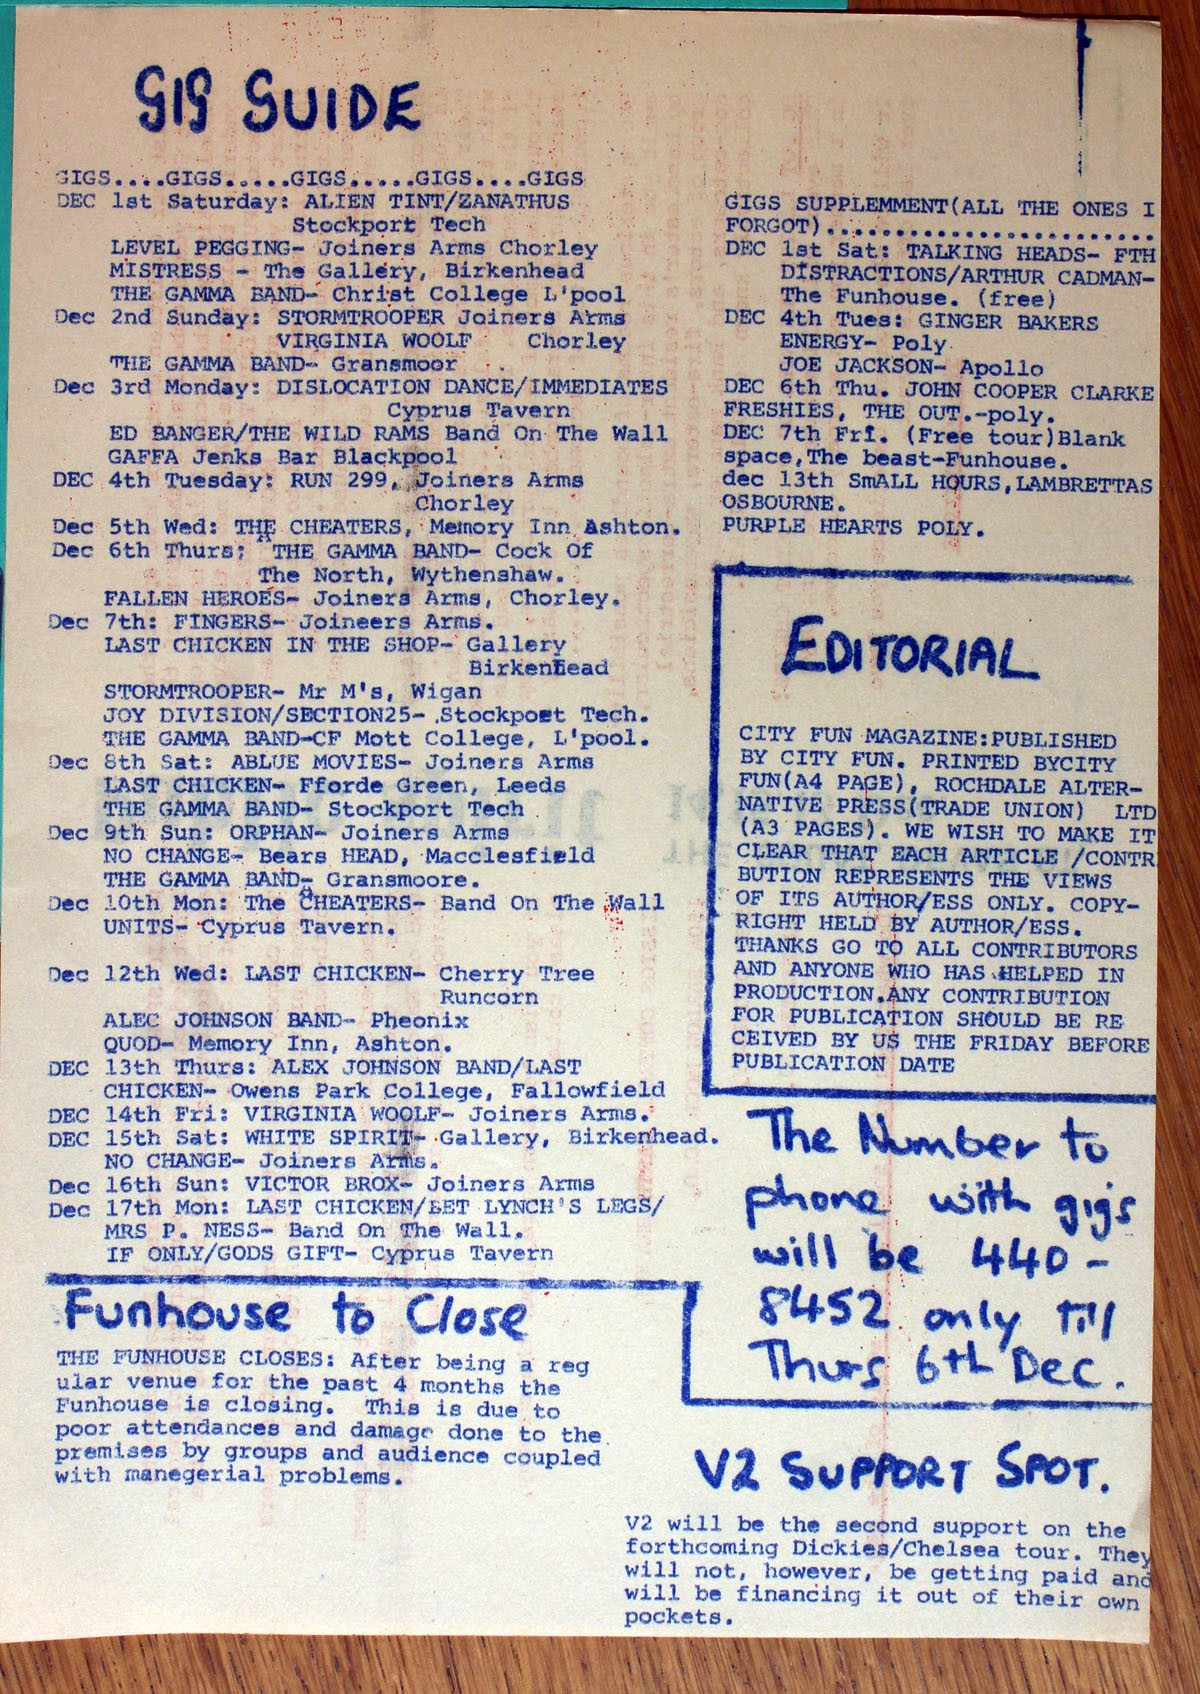 GIG GUIDE
GIGS....GIGS.....GIGS.....GIGS....GIGS
DEC 1st Saturday: ALIEN TINT/ZANATHUS
Stockport Tech
LEVEL PEGGING- Joiners Arms Chorley
MISTRESS - The Gallery, Birkenhead
THE GAMMA BAND- Christ College L'pool
Dec 2nd Sunday: STORMTROOPER Joiners Arms
VIRGINIA WOOLF Chorley
THE GAMMA BAND- Gransmoor
Dec 3rd Monday: DISLOCATION DANCE/IMMEDIATES
Cyprus Tavern
ED BANGER/THE WILD RAMS Band On The Wall
GAFFA Jenks Bar Blackpool
DEC 4th Tuesday: RUN 299, Joiners Arms
Chorley
Dec 5th Wed: THE CHEATERS, Memory Inn Ashton.
Dec 6th Thurs: THE GAMMA BAND- Cock Of
The North, Wythenshaw.
FALLEN HEROES- Joiners Arms, Chorley.
Dec 7th: FINGERS- Joineers Arms.
LAST CHICKEN IN THE SHOP- Gallery
Birkenhead
STORMTROOPER- Mr M's, Wigan
JOY DIVISION/SECTION25- Stockpoet Tech.
THE GAMMA BAND-CF Mott College, L'pool.
Dec 8th Sat: ABLUE MOVIES- Joiners Arms
LAST CHICKEN- Fforde Green, Leeds
THE GAMMA BAND- Stockport Tech
Dec 9th Sun: ORPHAN- Joiners Arms
NO CHANGE- Bears HEAD, Macclesfield
THE GAMMA BAND- Gransmoore.
Dec 10th Mon: The CHEATERS- Band On The Wall
UNITS- Cyprus Tavern.
Dec 12th Wed: LAST CHICKEN- Cherry Tree
Runcorn
ALEC JOHNSON BAND- Pheonix
QUOD- Memory Inn, Ashton.
DEC 13th Thurs: ALEX JOHNSON BAND/LAST
CHICKEN- Owens Park College, Fallowfield
DEC 14th Fri: VIRGINIA WOOLF- Joiners Arms.
DEC 15th Sat: WHITE SPIRIT- Gallery, Birkenhead.
NO CHANGE- Joiners Arms.
Dec 16th Sun: VICTOR BROX- Joiners Arms
Dec 17th Mon: LAST CHICKEN/BET LYNCH'S LEGS/
MRS P. NESS- Band On The Wall.
IF ONLY/GODS GIFT- Cyprus Tavern
Funhouse to Close
THE FUNHOUSE CLOSES: After being a reg
ular venue for the past 4 months the
Funhouse is closing. This is due to
poor attendances and damage done to the
premises by groups and audience coupled
with manegerial problems.
GIGS SUPPLEMMENT(ALL THE ONES I
FORGOT).......................
DEC 1st Sat: TALKING HEADS- FTH
DISTRACTIONS/ARTHUR CADMAN-
The Funhouse. (free)
DEC 4th Tues: GINGER BAKERS
ENERGY- Poly
JOE JACKSON- Apollo
DEC 6th Thu. JOHN COOPER CLARKE
FRESHIES, THE OUT.-poly.
DEC 7th Fri. (Free tour)Blank
space,The beast-Funhouse.
dec 13th SmALL HOURS,LAMBRETTAS
OSBOURNE.
PURPLE HEARTS POLY.
EDITORIAL
CITY FUN MAGAZINE:PUBLISHED
BY CITY FUN. PRINTED BYCITY
FUN(A4 PAGE), ROCHDALE ALTER-
NATIVE PRESS(TRADE UNION) LTD
(A3 PAGES). WE WISH TO MAKE IT
CLEAR THAT EACH ARTICLE /CONTR
BUTION REPRESENTS THE VIEWS
OF ITS AUTHOR/ESS ONLY. COPY-
RIGHT HELD BY AUTHOR/ESS.
THANKS GO TO ALL CONTRIBUTORS
AND ANYONE WHO HAS HELPED IN
PRODUCTION.ANY CONTRIBUTION
FOR PUBLICATION SHOULD BE RE
CEIVED BY US THE FRIDAY BEFORE
PUBLICATION DATE
The Number to
phone with gigs
will be 440-
8452 only till
Thurs 6th Dec.
V2 SUPPORT SPOT.
V2 will be the second support on the
forthcoming Dickies/Chelsea tour. They
will not, however, be getting paid and
will be financing it out of their own
pockets.